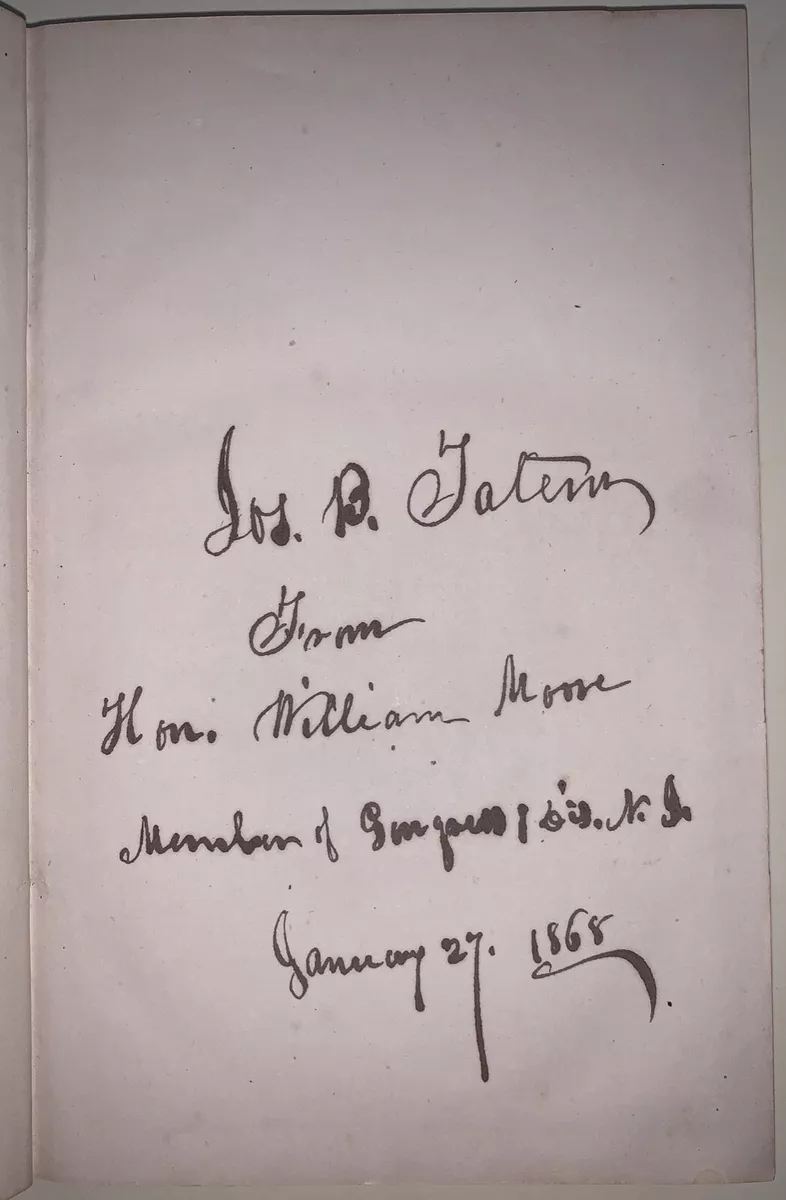 Jos. B. Tatem
From
Hon. William Moore
Member of Congress 1 Dis. N. J.
January 27. 1868